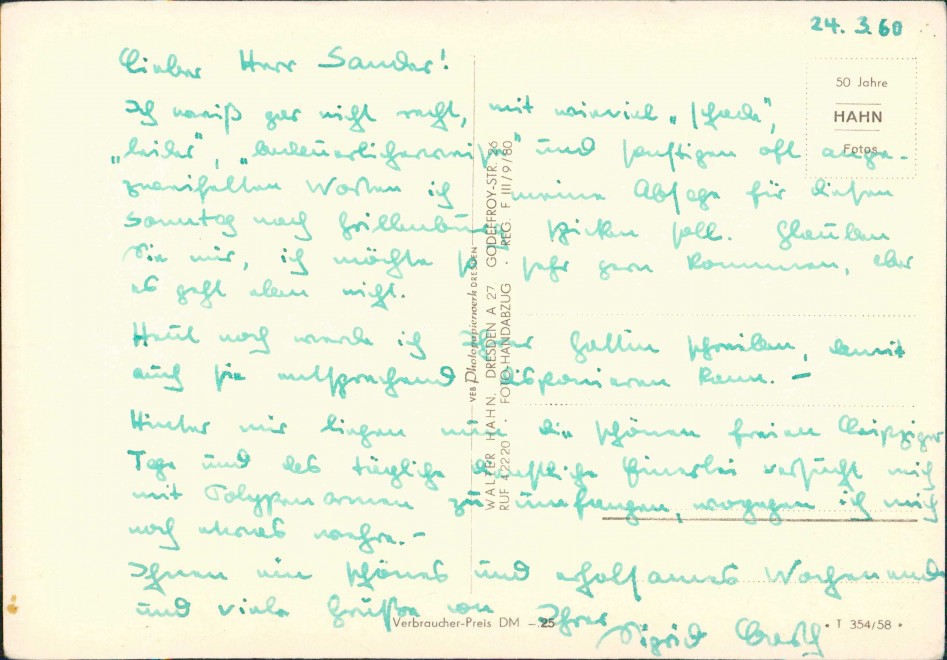 24. 3. 60
Lieber Herr Sander!
Ich weiß gar nicht recht, mit wieviel „schade",
„leider", „bedauerlicherweise" und sonstigen oft ange-
zweifelten Worten ich meine Absage für diesen
Sonntag nach Grillenburg schicken soll. Glauben
Sie mir, ich möchte so sehr gern kommen, aber
es geht eben nicht.
Heut noch werde ich Ihrer Gattin schreiben, damit
auch sie entsprechend disponieren kann. –
Hinter mir liegen nun die schönen freien Leipziger
Tage und das tägliche dienstliche Einerlei versucht mich
mit Polypenarmen zu umfangen, wogegen ich mich
noch etwas wehre. –
Ihnen ein schönes und erholsames Wochenende
und viele Grüße von Ihrer
Sigrid
50 Jahre
HAHN
Fotos
VEB Photopapierwerk DRESDEN
WALTER HAHN, DRESDEN A 27 GODEFFROY-STR. 26
RUF 42220 · FOTO-HANDABZUG · REG. F III/9/80
Verbraucher-Preis DM –.25
• T 354/58 •